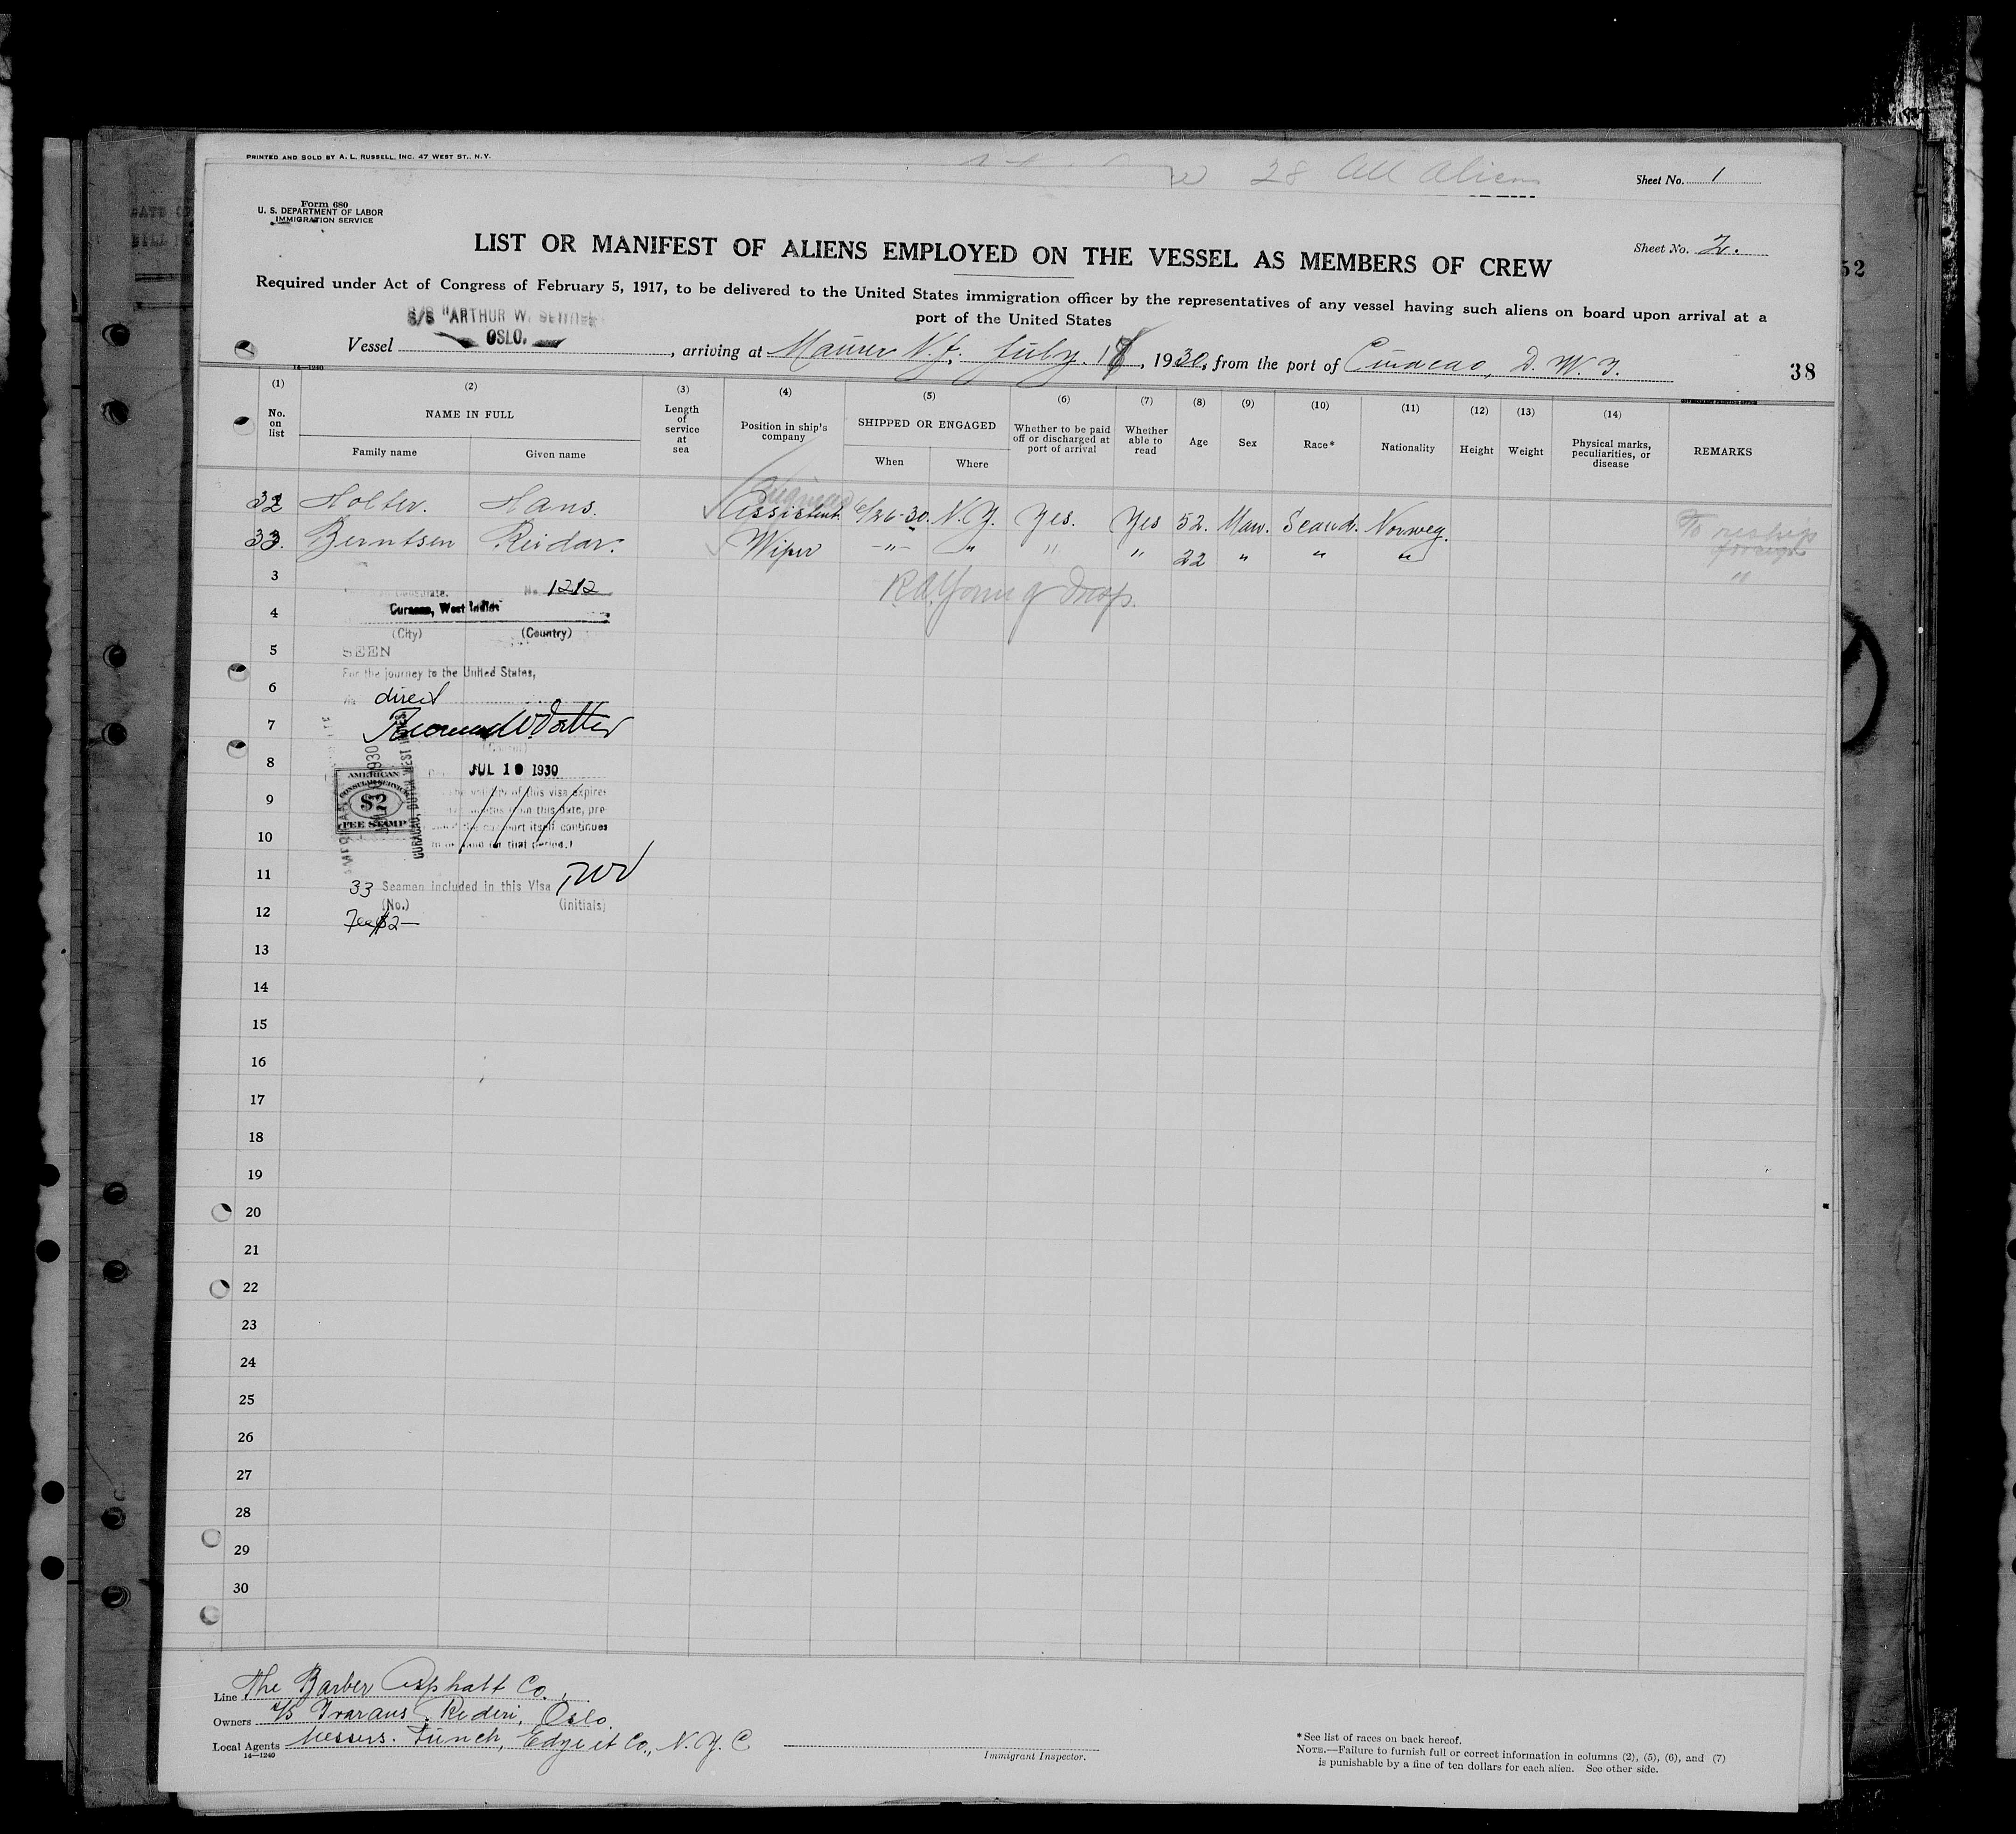 PRINTED AND SOLD BY A. L. RUSSELL, INC. 47 WEST ST., N.Y.
28 All Aliens
Sheet No. 1
Form 680
U. S. DEPARTMENT OF LABOR
IMMIGRATION SERVICE
LIST OR MANIFEST OF ALIENS EMPLOYED ON THE VESSEL AS MEMBERS OF CREW
Sheet No. 2.
52
Required under Act of Congress of February 5, 1917, to be delivered to the United States immigration officer by the representatives of any vessel having such aliens on board upon arrival at a
port of the United States
S/S "ARTHUR W.
OSLO.
Vessel , arriving at Maurer N.J. July. 18, 1930, from the port of Curacao, D. W. I.
14—1240
38
(1) (2) (3) (4) (5) (6) (7) (8) (9) (10) (11) (12) (13) (14)
No. on list NAME IN FULL Length of service at sea Position in ship's company SHIPPED OR ENGAGED Whether to be paid off or discharged at port of arrival Whether able to read Age Sex Race* Nationality Height Weight Physical marks, peculiarities, or disease REMARKS
Family name Given name When Where
32 Holter. Hans. Assistent. 6/26-30. N.Y. Yes. Yes 52. Man. Scand. Norweg. To reship foreign
33. Berntsen Reidar. Wiper -"- " " " 22 " " " "
3
4
5
6
7
8
9
10
11
12
13
14
15
16
17
18
19
20
21
22
23
24
25
26
27
28
29
30
No. 1212
Curacao, West Indies
(City) (Country)
SEEN
For the journey to the United States,
Via direct
JUL 10 1930
AMERICAN
CONSULAR SERVICE
$2
FEE STAMP
CURACAO, DUTCH WEST INDIES
the validity of this visa expires
months from this date, pre-
the passport itself continues
to be valid for that period.)
33 Seamen included in this Visa
(No.) (initials)
Fee $2—
Line The Barber Asphalt Co.
Owners A/S Ivarans Rederi, Oslo.
Local Agents Messrs. Funch, Edye et Co., N.Y.C
14—1240
Immigrant Inspector.
* See list of races on back hereof.
NOTE.—Failure to furnish full or correct information in columns (2), (5), (6), and (7)
is punishable by a fine of ten dollars for each alien. See other side.